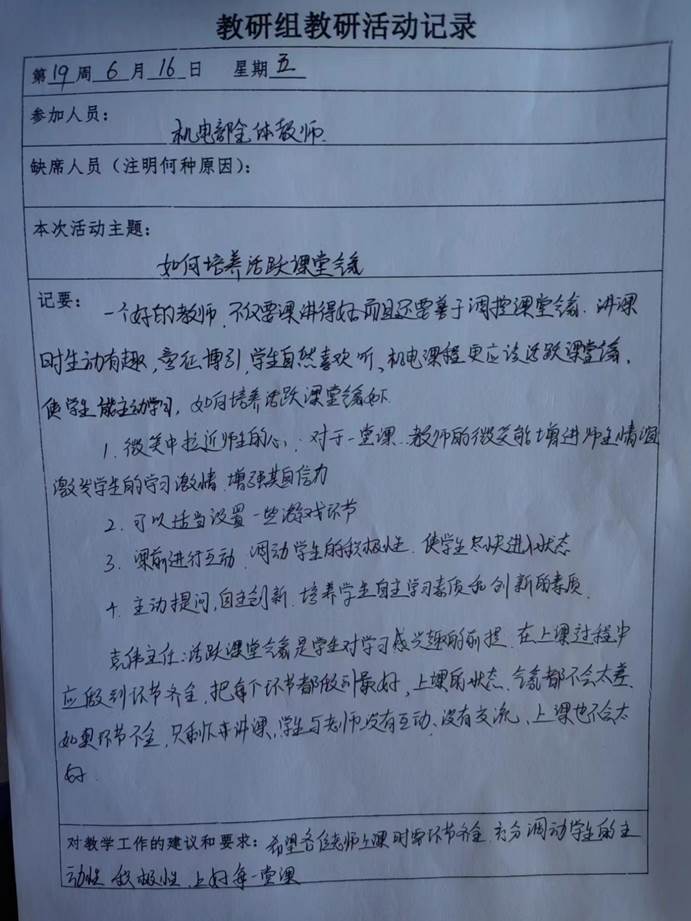 教研组教研活动记录
第19周6月16日 星期五
参加人员：
机电部全体教师.
缺席人员（注明何种原因）：
本次活动主题：
如何培养活跃课堂气氛
记要： 一个好的教师，不仅要课讲得好而且还要善于调控课堂气氛. 讲课
时生动有趣，旁征博引，学生自然喜欢听、机电课程更应该活跃课堂气氛，
使学生能主动学习，如何培养活跃课堂气氛如下
1. 微笑中拉近师生的心：对于一堂课，教师的微笑能增进师生情谊
激发学生的学习激情，增强其自信力
2. 可以适当设置一些游戏环节
3. 课前进行互动，调动学生的积极性，使学生尽快进入状态
4. 主动提问，自主创新，培养学生自主学习素质和创新的素质.
主任：活跃课堂气氛是学生对学习感兴趣的前提，在上课过程中
应做到环节齐全，把每个环节都做到最好，上课的状态、气氛都不会太差
如果环节不全，只剩下来讲课，学生与老师没有互动、没有交流、上课也不会太
好.
对教学工作的建议和要求：希望各位老师上课时要环节齐全，充分调动学生的主
动性 积极性，上好每一堂课